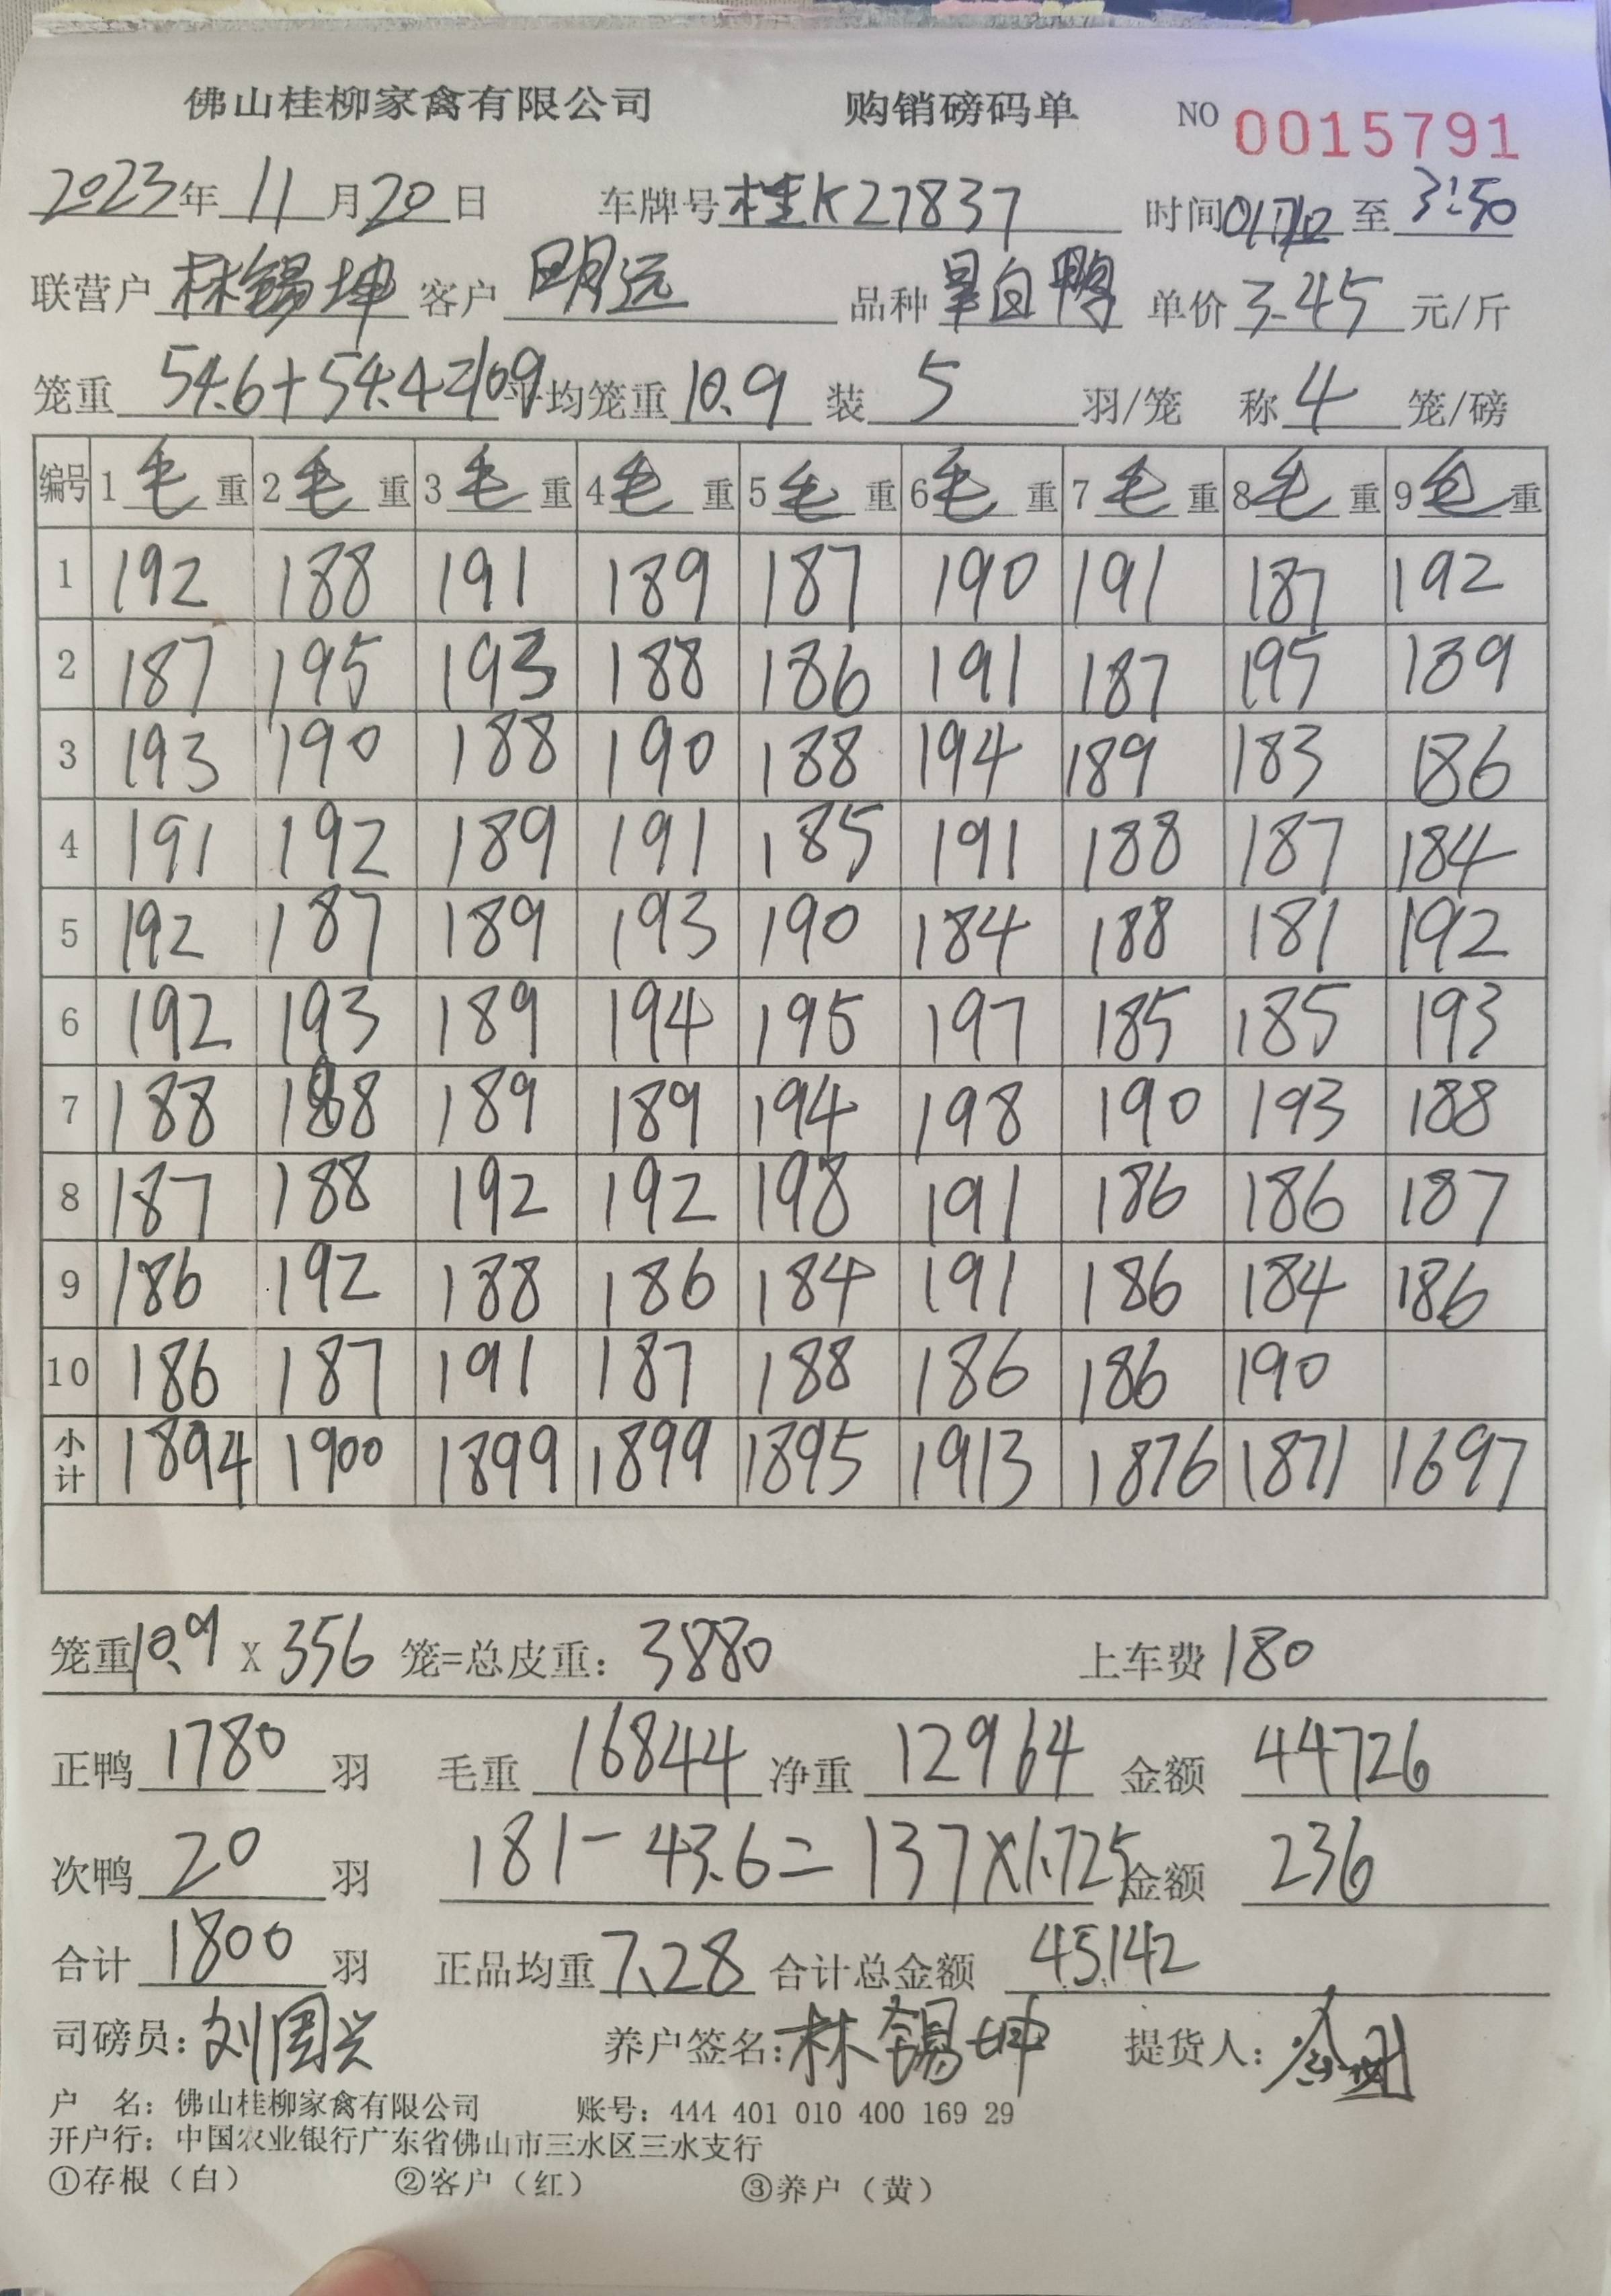 佛山桂柳家禽有限公司 购销磅码单 NO 0015791
2023年 11月20日 车牌号桂K27837 时间 至 3:50
联营户 林锡坤 客户 明远 品种 白鸭 单价3.45元/斤
笼重 54.6+54.4=109 平均笼重10.9 装 5 羽/笼 称4 笼/磅
编号 1毛重 2毛重 3毛重 4毛重 5毛重 6毛重 7毛重 8毛重 9毛重
1 192 188 191 189 187 190 191 187 192
2 187 195 193 188 186 191 187 195 189
3 193 190 188 190 188 194 189 183 186
4 191 192 189 191 185 191 188 187 184
5 192 187 189 193 190 184 188 181 192
6 192 193 189 194 195 197 185 185 193
7 188 188 189 189 194 198 190 193 188
8 187 188 192 192 198 191 186 186 187
9 186 192 188 186 184 191 186 184 186
10 186 187 191 187 188 186 186 190
小计 1894 1900 1899 1899 1895 1913 1876 1871 1697
笼重10.9 X 356 笼=总皮重: 3880 上车费 180
正鸭 1780 羽 毛重 16844 净重 12964 金额 44726
次鸭 20 羽 181-43.6=137×1.725 金额 236
合计 1800 羽 正品均重 7.28 合计总金额 45142
司磅员:刘国兴 养户签名:林锡坤 提货人:
户 名: 佛山桂柳家禽有限公司 账号: 444 401 010 400 169 29
开户行: 中国农业银行广东省佛山市三水区三水支行
①存根（白） ②客户（红） ③养户（黄）